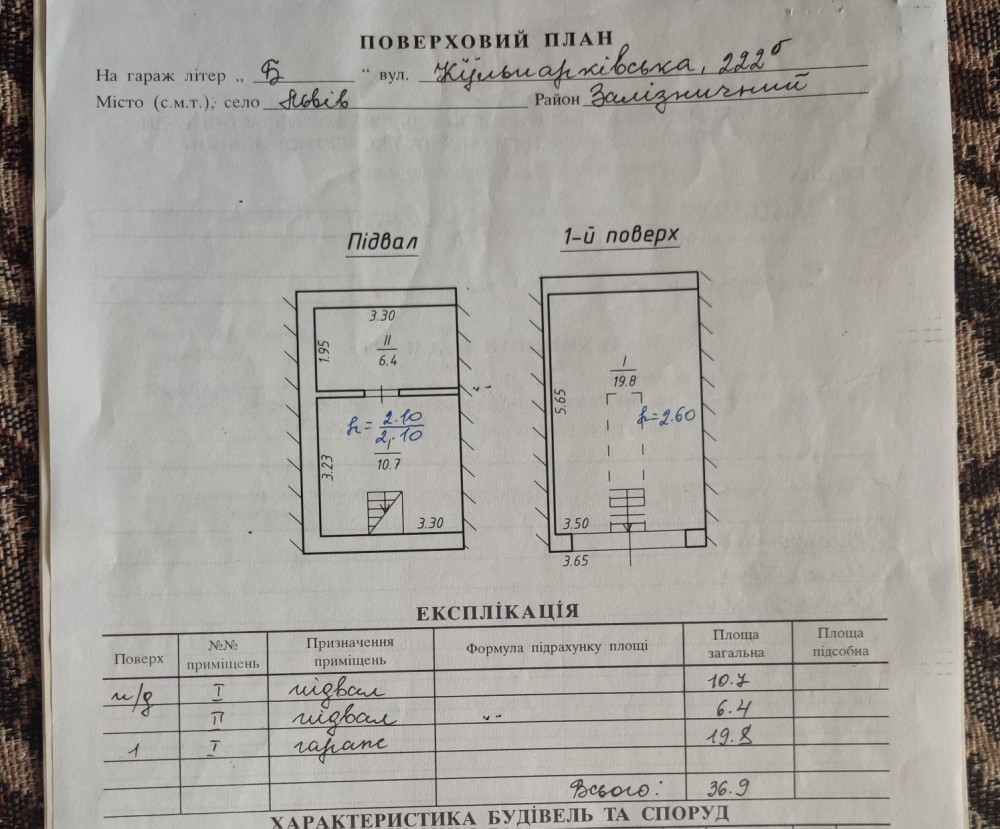 ПОВЕРХОВИЙ ПЛАН
На гараж літер „ Б “ вул. Кульпарківська, 222б
Місто (с.м.т.), село Львів Район Залізничний
Підвал
1-й поверх
3.30
1.95
II
6.4
h= 2.10
2,10
I
10.7
3.23
3.30
I
19.8
5.65
h=2.60
3.50
3.65
ЕКСПЛІКАЦІЯ
Поверх №№ приміщень Призначення приміщень Формула підрахунку площі Площа загальна Площа підсобна
п/д I підвал 10.7
II підвал 6.4
1 I гараж 19.8
Всього: 36.9
ХАРАКТЕРИСТИКА БУДІВЕЛЬ ТА СПОРУД